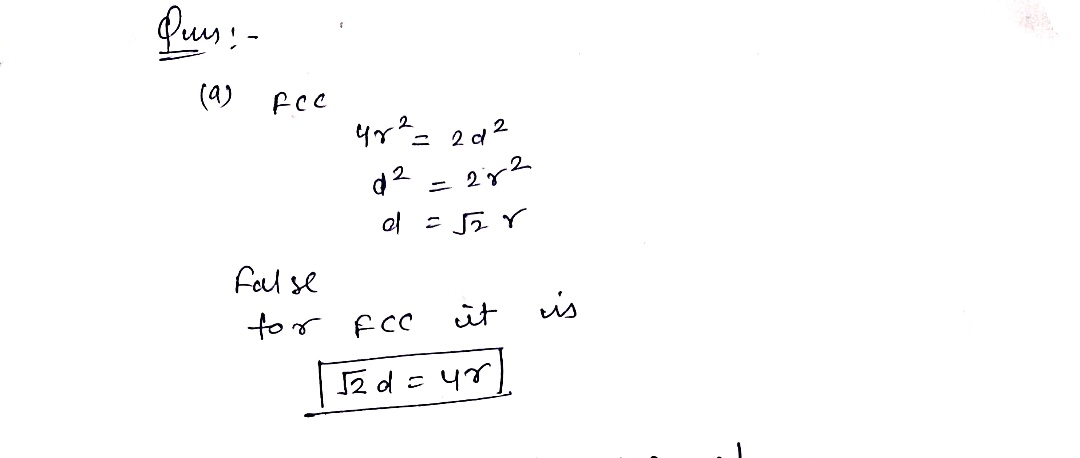 Ques:-
(a) FCC
4r² = 2d²
d² = 2r²
d = √2 r
false
for FCC it is
√2 d = 4r